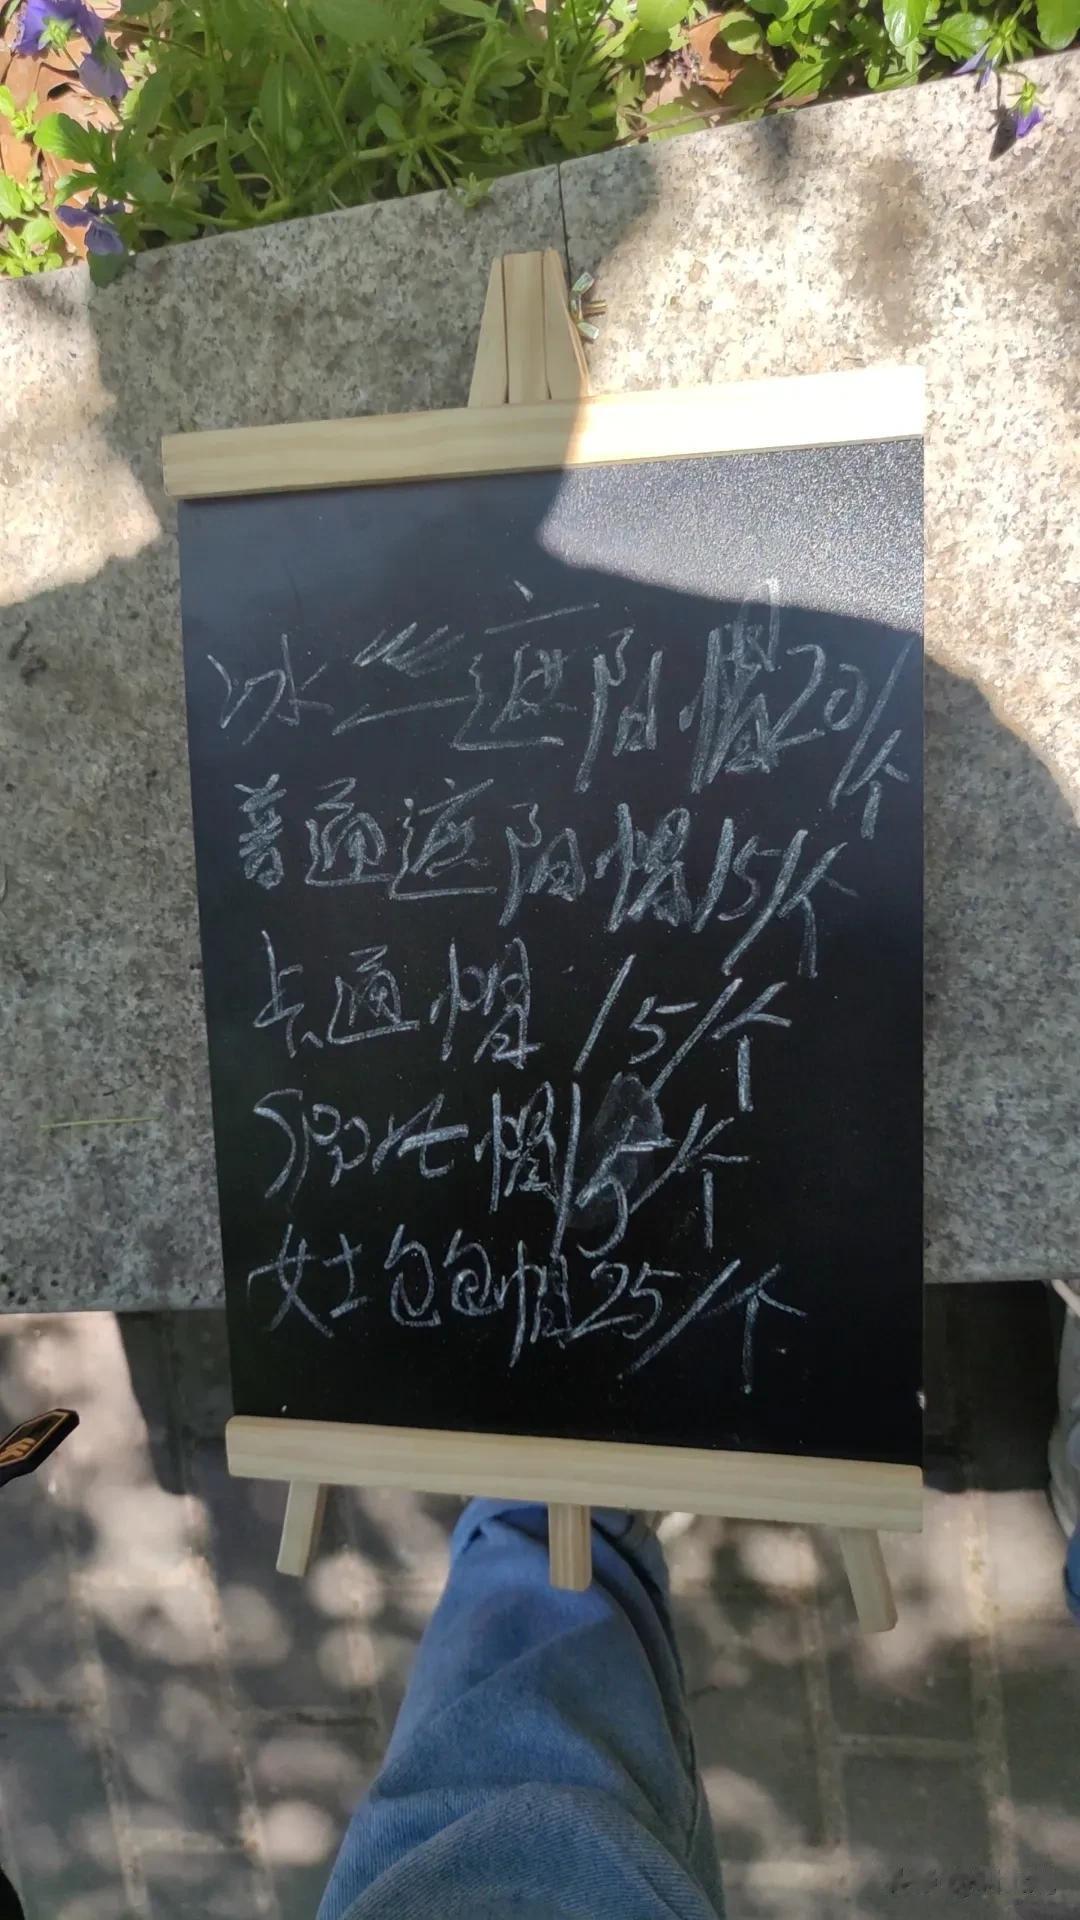 冰丝遮阳帽20/个
普通遮阳帽15/个
卡通帽 15/个
Sport帽15/个
女士包包帽25/个